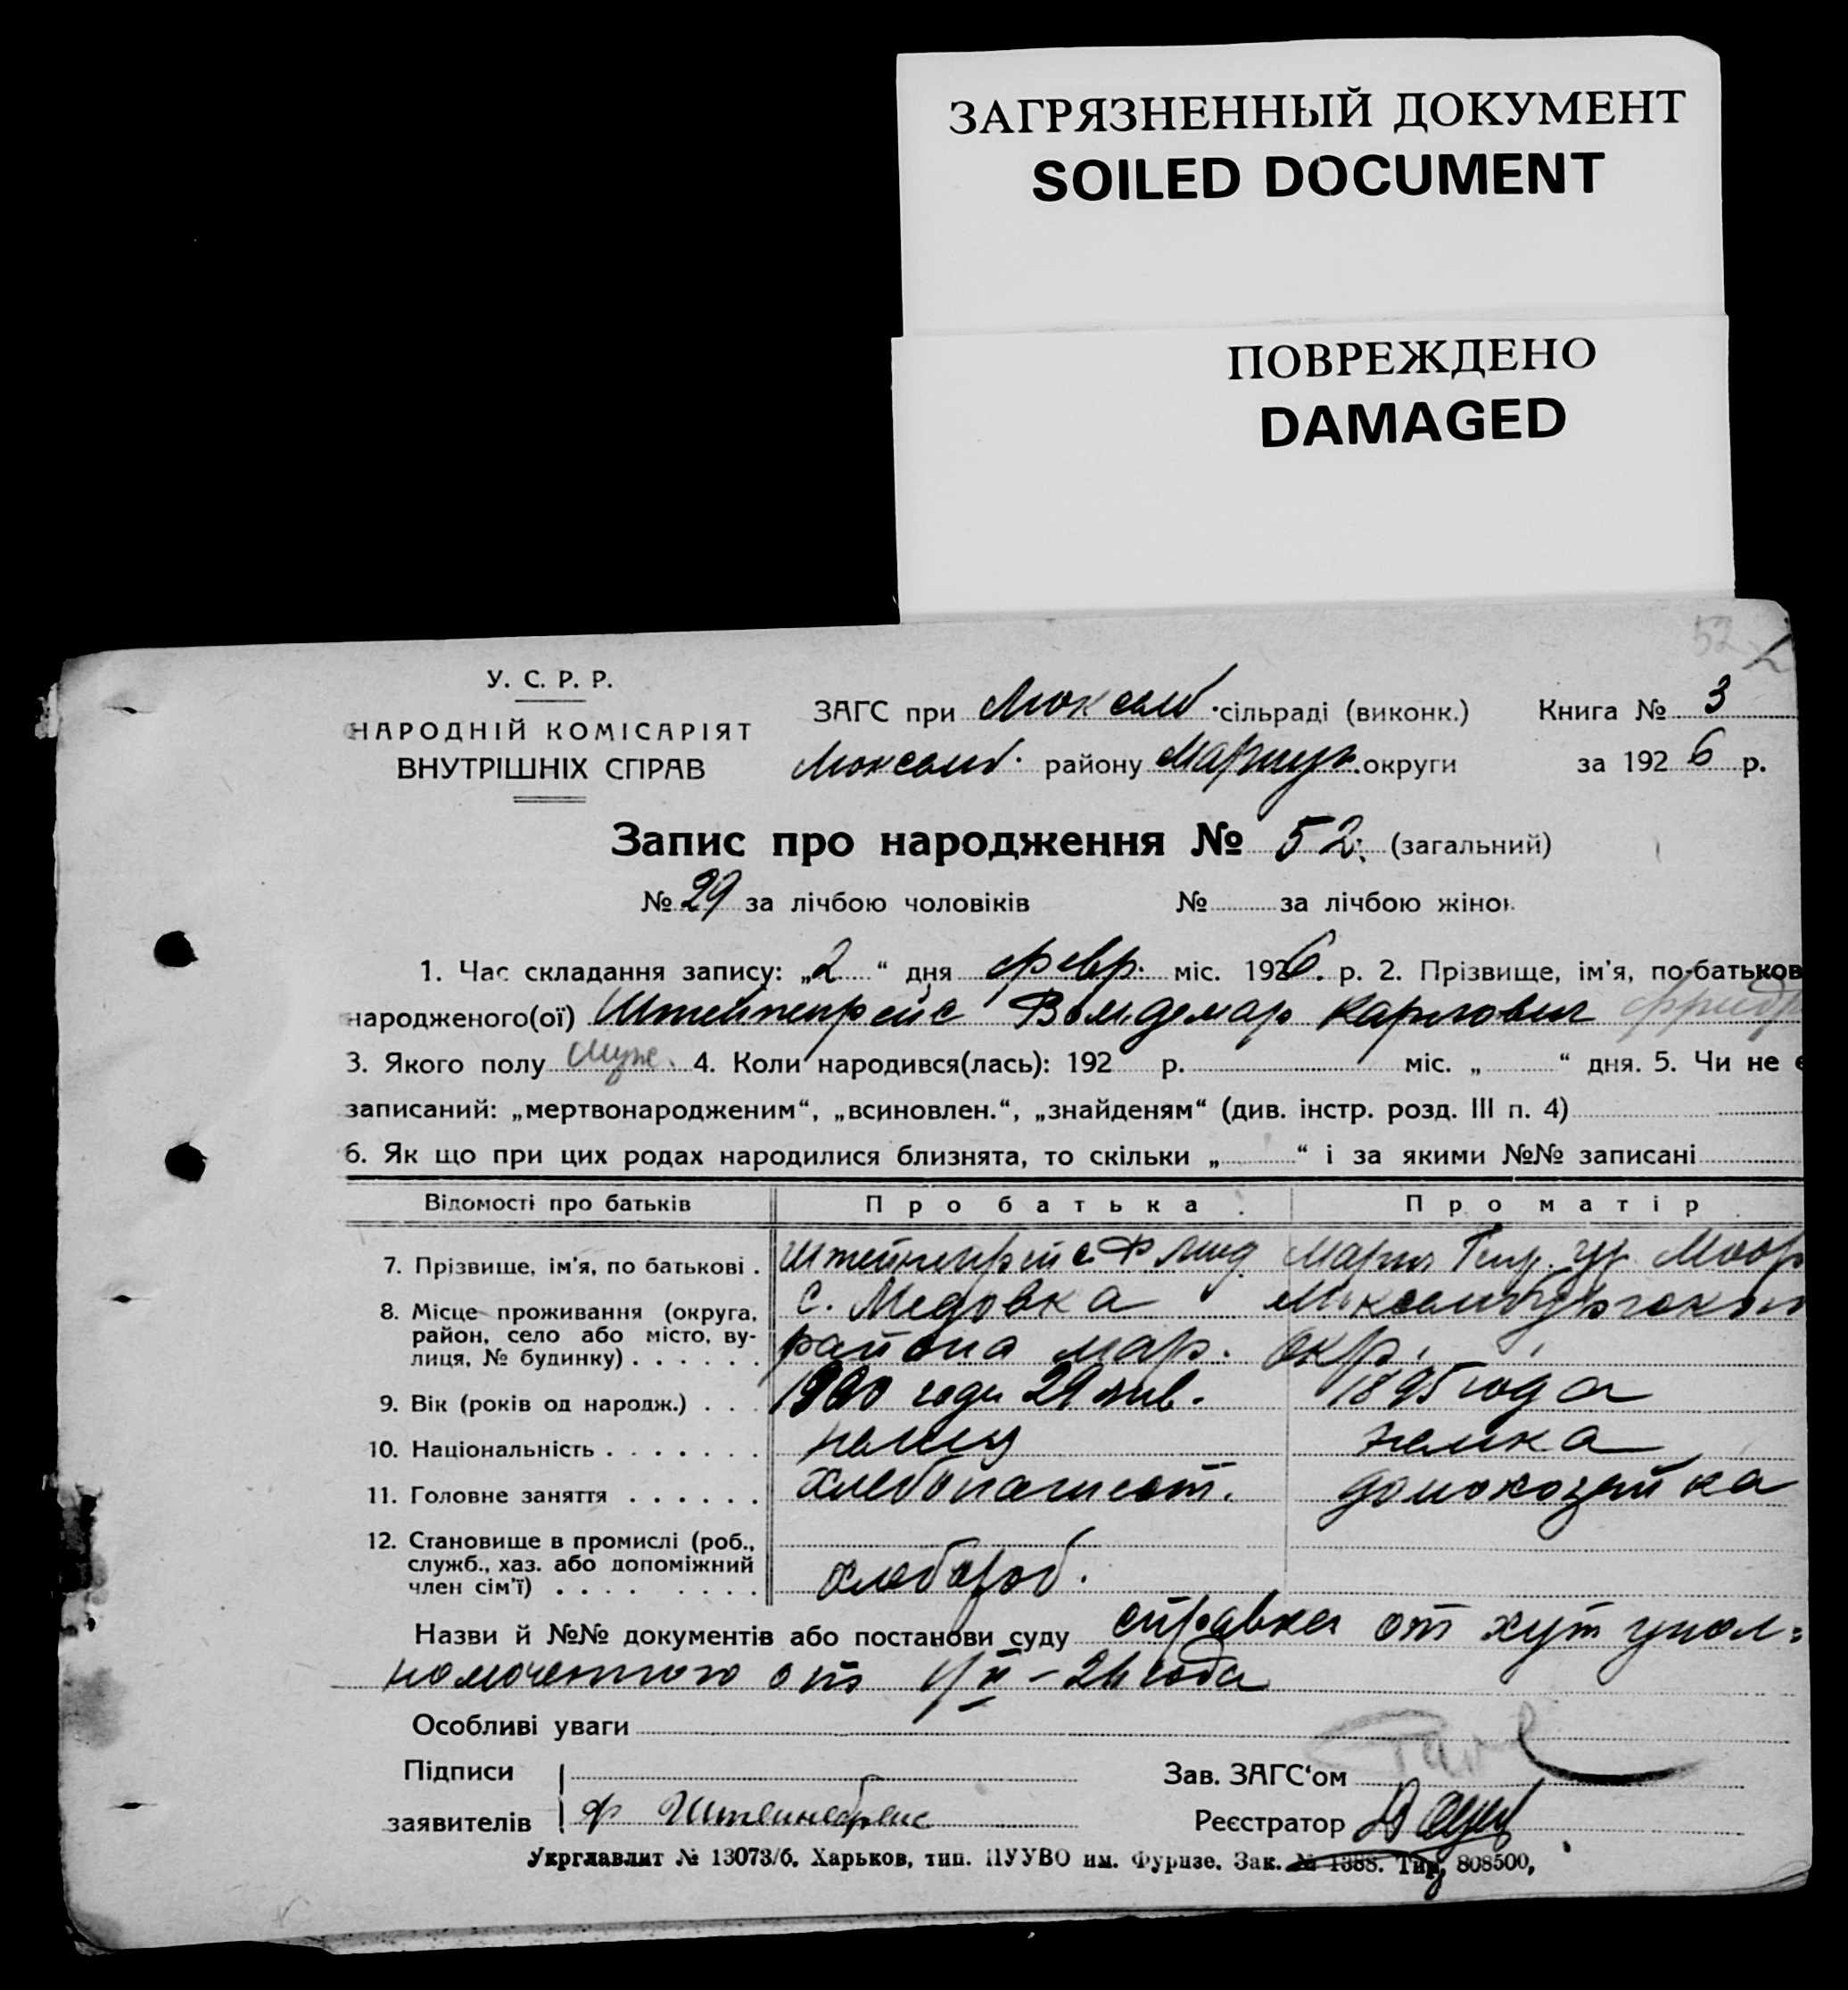 ЗАГРЯЗНЕННЫЙ ДОКУМЕНТ
SOILED DOCUMENT
ПОВРЕЖДЕНО
DAMAGED
52
У. С. Р. Р.
НАРОДНІЙ КОМІСАРІЯТ
ВНУТРІШНІХ СПРАВ
ЗАГС при Люксемб. сільраді (виконк.) Книга № 3
Люксемб. району Мариуп. округи за 1926 р.
Запис про народження № 52. (загальний)
№ 29 за лічбою чоловіків № за лічбою жінок
1. Час складання запису: „2“ дня февр. міс. 1926. р. 2. Прізвище, ім'я, по-батьков
народженого(ої) Вольдемар Карлович Фридр
3. Якого полу Муж. 4. Коли народився(лась): 192 р. міс. „ “ дня. 5. Чи не є
записаний: „мертвонародженим“, „всиновлен.“, „знайденям“ (див. інстр. розд. III п. 4)
6. Як що при цих родах народилися близнята, то скільки „ “ і за якими №№ записані
Відомості про батьків Про батька Про матір
7. Прізвище, ім'я, по батькові . Мария
8. Місце проживання (округа, район, село або місто, вулиця, № будинку) . . . . . . с. Медовка
района мар. окр.
9. Вік (років од народж.) . . . 1900 года 29 янв. 1895 года
10. Національність . . . . . . . немец немка
11. Головне заняття . . . . . . хлебопашест. домохозяйка
12. Становище в промислі (роб., служб., хаз. або допоміжний член сім'ї) . . . . . . . . хлебороб.
Назви й №№ документів або постанови суду справка от хут упол=
номоченного от года
Особливі уваги
Підписи Зав. ЗАГС‘ом
заявителів Ф Реєстратор
Укрглавлит № 13073/6. Харьков, тип. ПУУВО им. Фрунзе. Зак. № 1388. Тир. 808500,